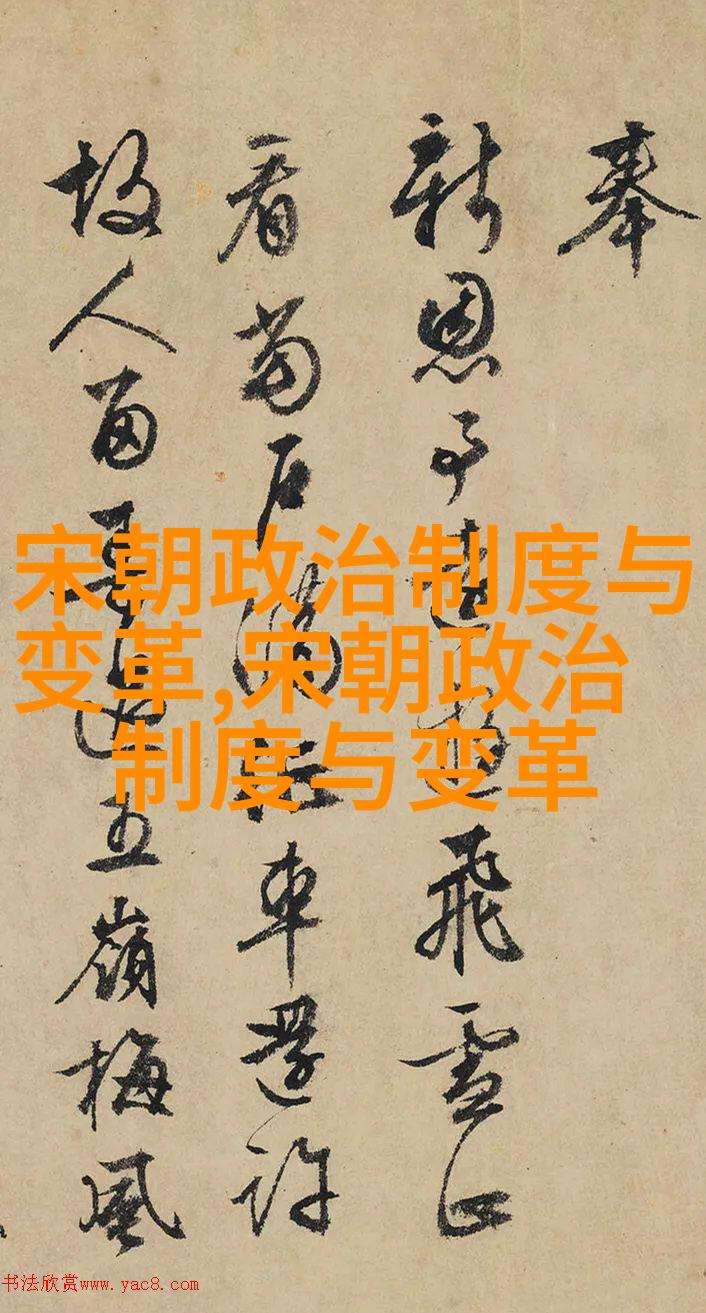 奉
新恩予飛雪
看石車還許
故人五嶺梅風
宋朝政治制度与
变革,宋朝政治
制度与变革
书法欣赏www.yac8.com